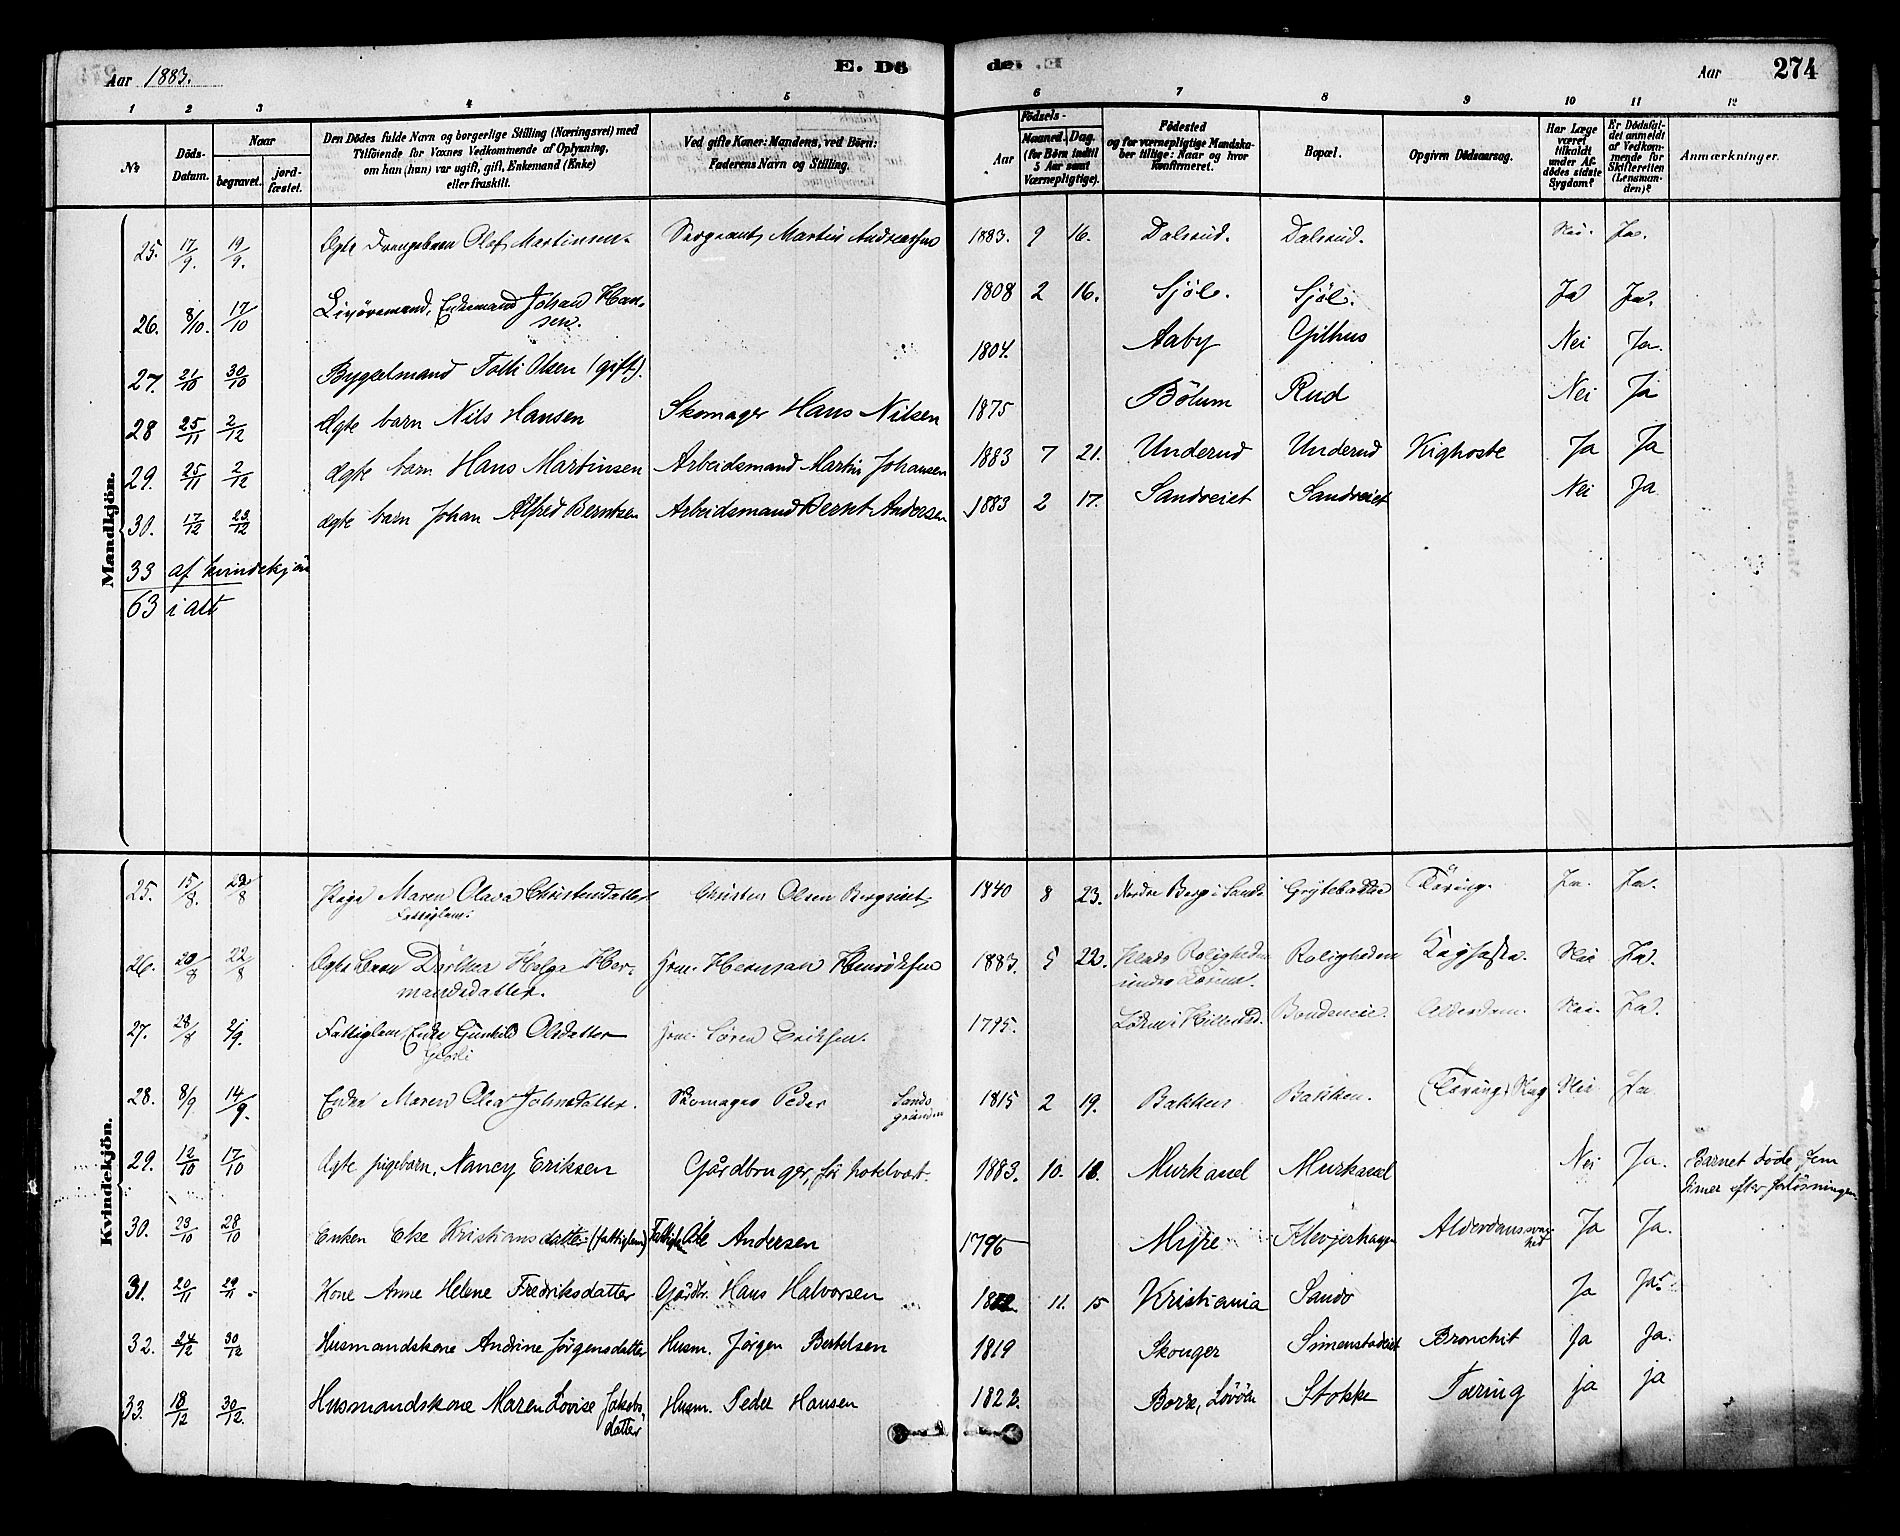 Aar 1883.
E. Dö
de. E.
Aar
274
1 2 3 4 5 6 7 8 9 10 11 12
No
Döds-Datum.
Naar
begravet.
jord-fæstet.
Den Dödes fulde Navn og borgerlige Stilling (Næringsvei) med
Tilföiende for Voxnes Vedkommende af Oplysning,
om han (hun) var ugift, gift, Enkemand (Enke)
eller fraskilt.
Ved gifte Koner: Mandens, ved Börn:
Faderens Navn og Stilling.
Födsels-
Aar
Maaned. Dag.
(for Børn indtil
5 Aar samt
Værnepligtige).
Födested
og for værnepligtige Mandska-
ber tillige: Naar og hvor
Konfirmeret.
Bopæl.
Opgiven Dödsaarsag.
Har Læge
været
tilkaldt
under Af-
dödes sidste
Sygdom?
Er Dödsfal-
det anmeldt
af Vedkom-
mende for
Skifteretten
(Lensman-
den)?
Anmærkninger.
Mandkjön.
25. 17/9. 19/9. Ægte Drengebarn Olaf Martinsen. Sergeant Martin Andreassen 1883. 9 16. Dalsrud. Dalsrud. Nei. Ja.
26. 8/10. 17/10 Livöremand, Enkemand Johan Han-
sen. 1808 2 16. Sjöl. Sjöl. Ja Ja.
27. 21/10 30/10 Bygselmand Tolli Olsen (gift). 1804. Aaby Gilhus Nei Ja.
28 25/11 2/12 Ægte barn Nils Hansen Skomager Hans Nilsen 1875 Bölum Rud Nei Ja
29. 25/11 2/12 ægte barn Hans Martinsen Arbeidsmand Martin Johansen 1883 7 21. Underud Underud Kighoste Ja Ja
30. 17/12 23/12 ægte barn Johan Alfred Berntsen Arbeidsmand Bernt Andersen 1883 2 17. Sandveiet Sandveiet Nei Ja
33 af kvindekjön
63 i alt
Kvindekjön.
25. 15/8. 22/8 Pige Maren Olava Christensdatter Christen Olsen Bergseiet 1840 8 23. Nordre Berg i Sande Grytebakke Tæring. Ja. Ja.
Fattiglem.
26. 20/8 22/8 Ægte Helga Her-
mandsdatter. Herman 1883. 5 22. Roligheden
under Roligheden Nei Ja.
27. 28/8 2/9. Fattiglem, Enke Gunhild Olsdatter Søren Eriksen. 1795. i Hillestad. Alderdom. Nei. Ja.
28. 8/9 14/9. Enke Maren Olea Johnsdatter. Skomager Peder Sande
grunden 1815 2 19. Bakken Bakken. Tæring Nei Ja
29. 12/10 17/10 Ægte pigebarn, Nancy Eriksen Gårdbruger, før hotelvært. 1883. 10. Murkasel Murkasel Nei Ja. Barnet døde fem
timer efter forløsningen
30. 23/10 28/10 Enken Else Kristiansdatter (fattiglem) Fattiglem Ole Andersen 1796 Myre Klevjerhagen Alderdomssvag-
hed Ja Ja.
31. 20/11 29/11. Kone Anne Helene Fredriksdatter Gårdbr. Hans Halvorsen 11. 15 Kristiania Sando Ja Ja
32. 24/12 30/12 Husmandskone Andrine Jørgensdatter Husm. Jørgen Bertelsen 1819 Skouger Simenstadeiet Bronchit Ja Ja.
33. 18/12 30/12. Husmandskone Maren Lovise Jakobs-
datter Husm. Peder Hansen 1822. Borre, Løvøen Stokke Tæring ja ja